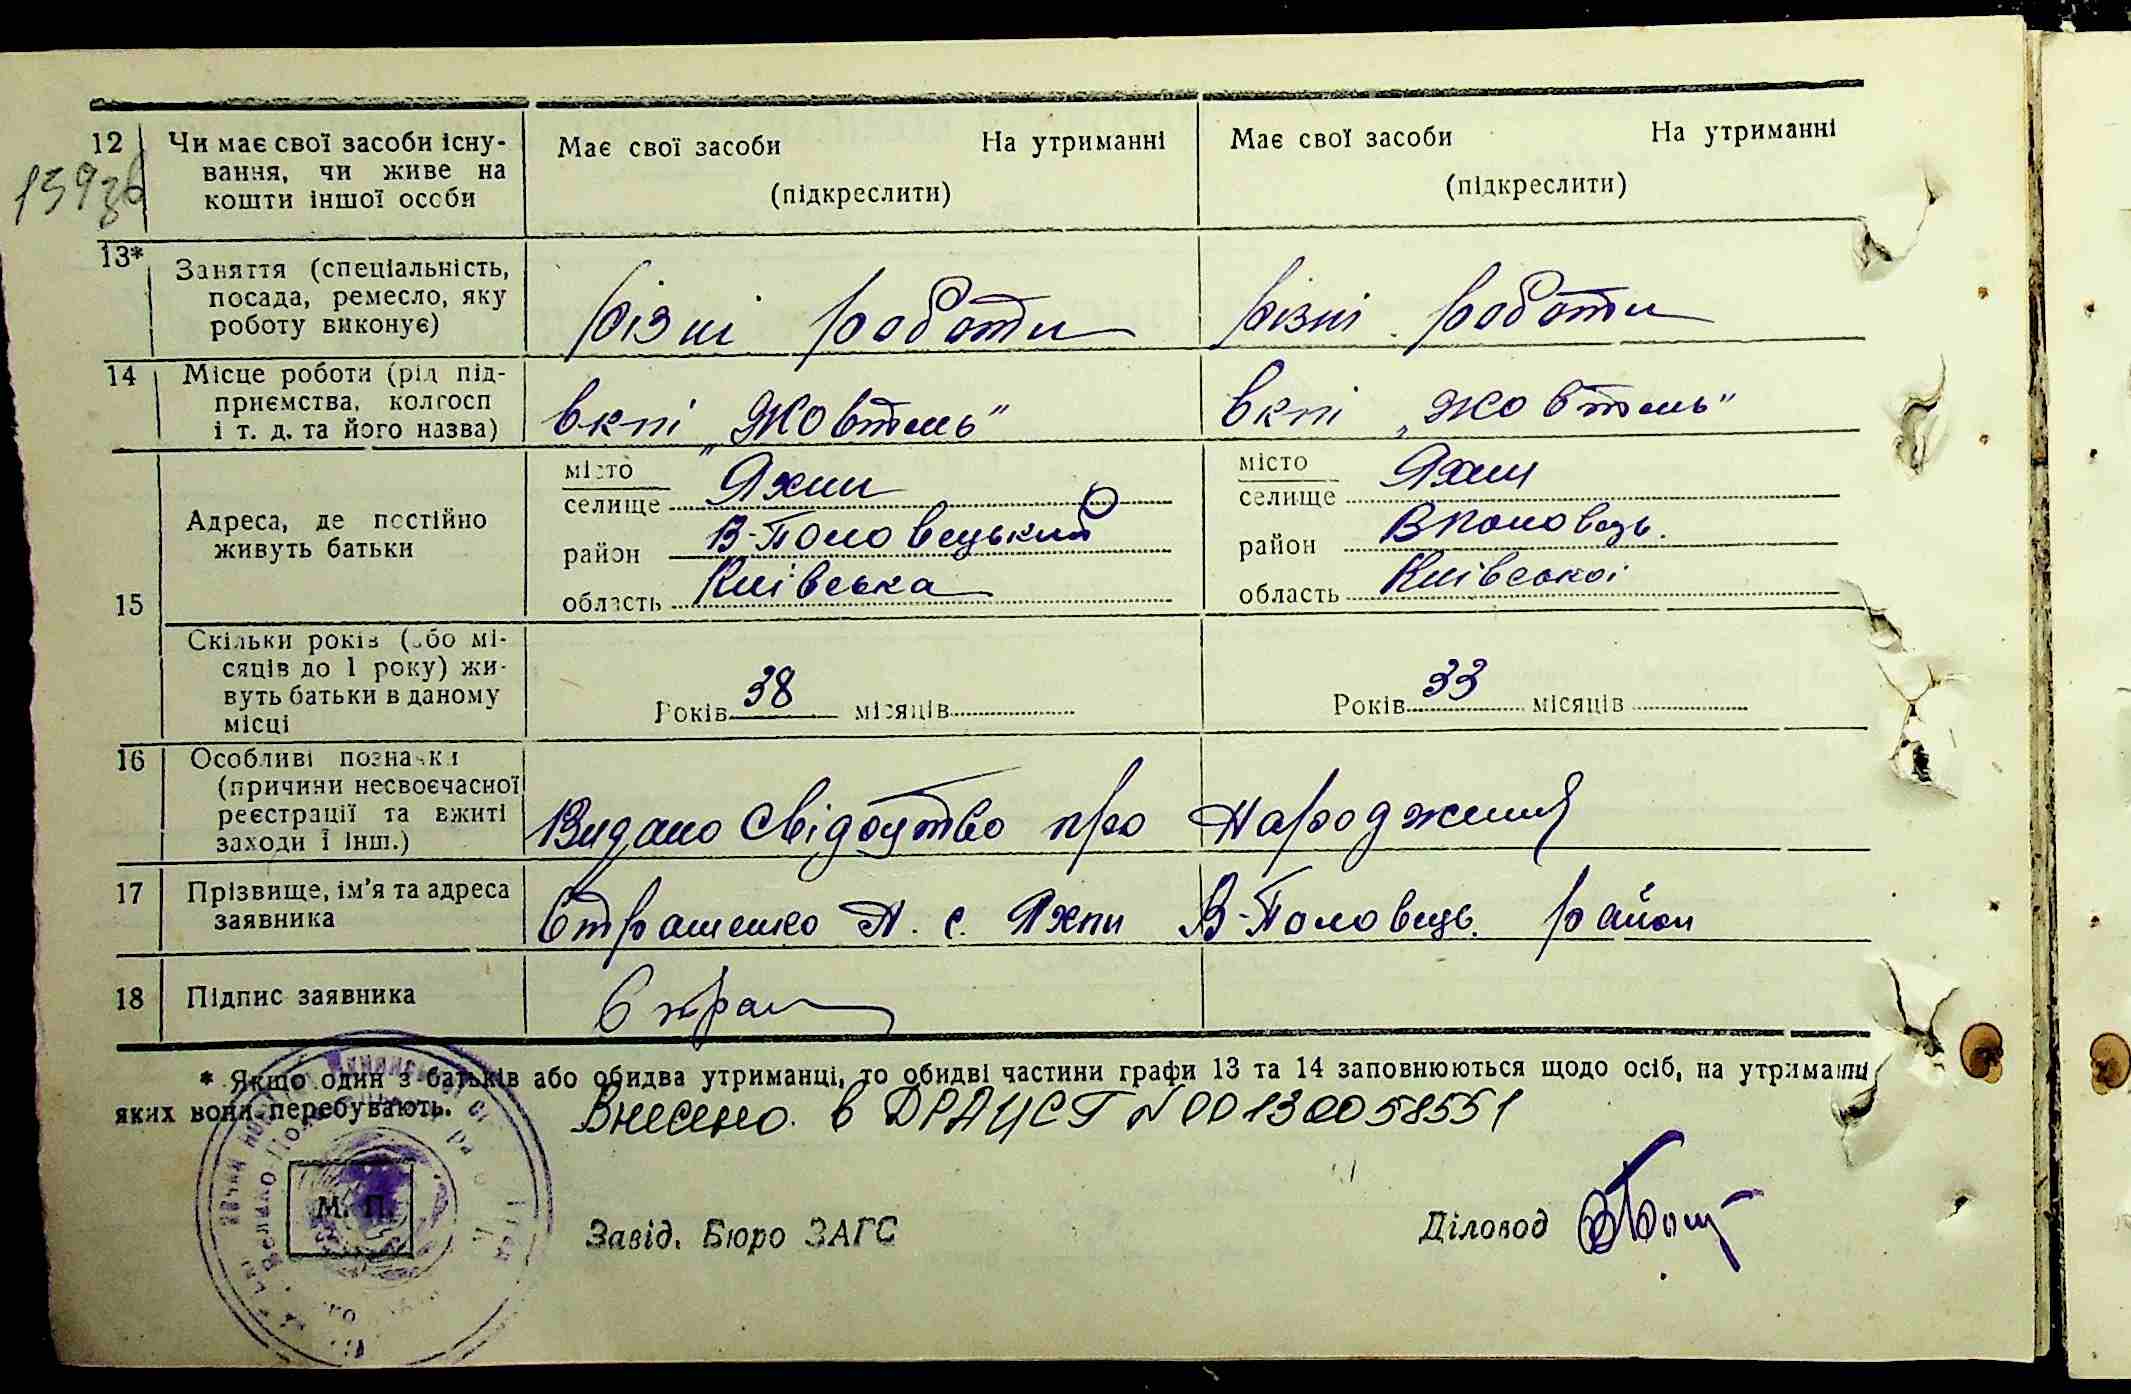 12 Чи має свої засоби існу-
вання, чи живе на
кошти іншої особи
Має свої засоби На утриманні
(підкреслити)
Має свої засоби На утриманні
(підкреслити)
159зв
13* Заняття (спеціальність,
посада, ремесло, яку
роботу виконує)
різні роботи
різні роботи
14 Місце роботи (рід під-
приємства, колгосп
і т. д. та його назва)
в кпі „Жовтень"
в кпі „Жовтень"
15
Адреса, де постійно
живуть батьки
місто
селище Яхни
район В-Половецький
область Київська
місто
селище Яхни
район В Половець.
область Київської
Скільки років (або мі-
сяців до 1 року) жи-
вуть батьки в даному
місці
Років 38 місяців
Років 33 місяців
16 Особливі позначки
(причини несвоєчасної
реєстрації та вжиті
заходи і інш.)
Видано свідоцтво про народження
17 Прізвище, ім'я та адреса
заявника
Страшенко Н. с. Яхни В-Половець. район
18 Підпис заявника
Страш
* Якщо один з батьків або обидва утриманці, то обидві частини графи 13 та 14 заповнюються щодо осіб, на утриманні
яких вони перебувають.
Внесено в ДРАЦСГ №00130058551
М. П.
Завід. Бюро ЗАГС
Діловод